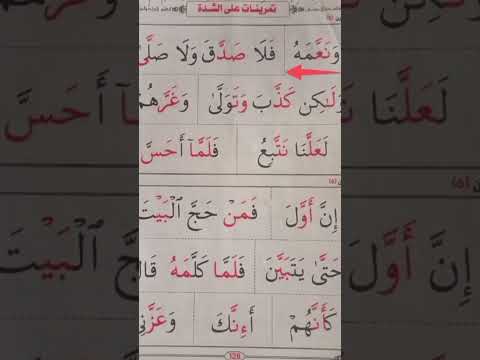 تمرينات على الشدة
وَنَعَّمَهُ فَلَا صَدَّقَ وَلَا صَلَّىٰ
وَلَٰكِن كَذَّبَ وَتَوَلَّىٰ وَغَرَّهُمْ
لَعَلَّنَا نَتَّبِعُ فَلَمَّآ أَحَسَّ
(٥)
إِنَّ أَوَّلَ فَمَنْ حَجَّ ٱلْبَيْتَ
حَتَّىٰ يَتَبَيَّنَ فَلَمَّا كَلَّمَهُ قَالَ
كَأَنَّهُمْ أَءِنَّكَ وَعَزَّنِي
126